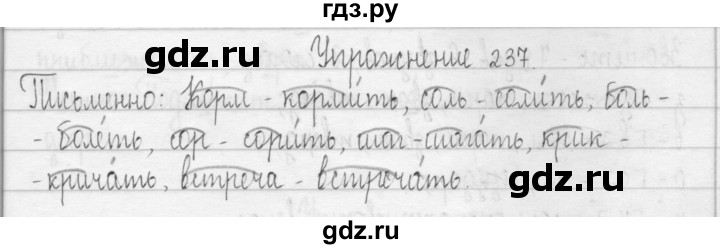 гдз.ру
gdz.ru gdz.ru
Упражнение 237.
Письменно: Корм - корми́ть, соль - соли́ть, боль -
- боле́ть, сор - сори́ть, шаг - шага́ть, крик -
- крича́ть, встреча - встреча́ть.
gdz.ru
gdz.ru
гдз.ру